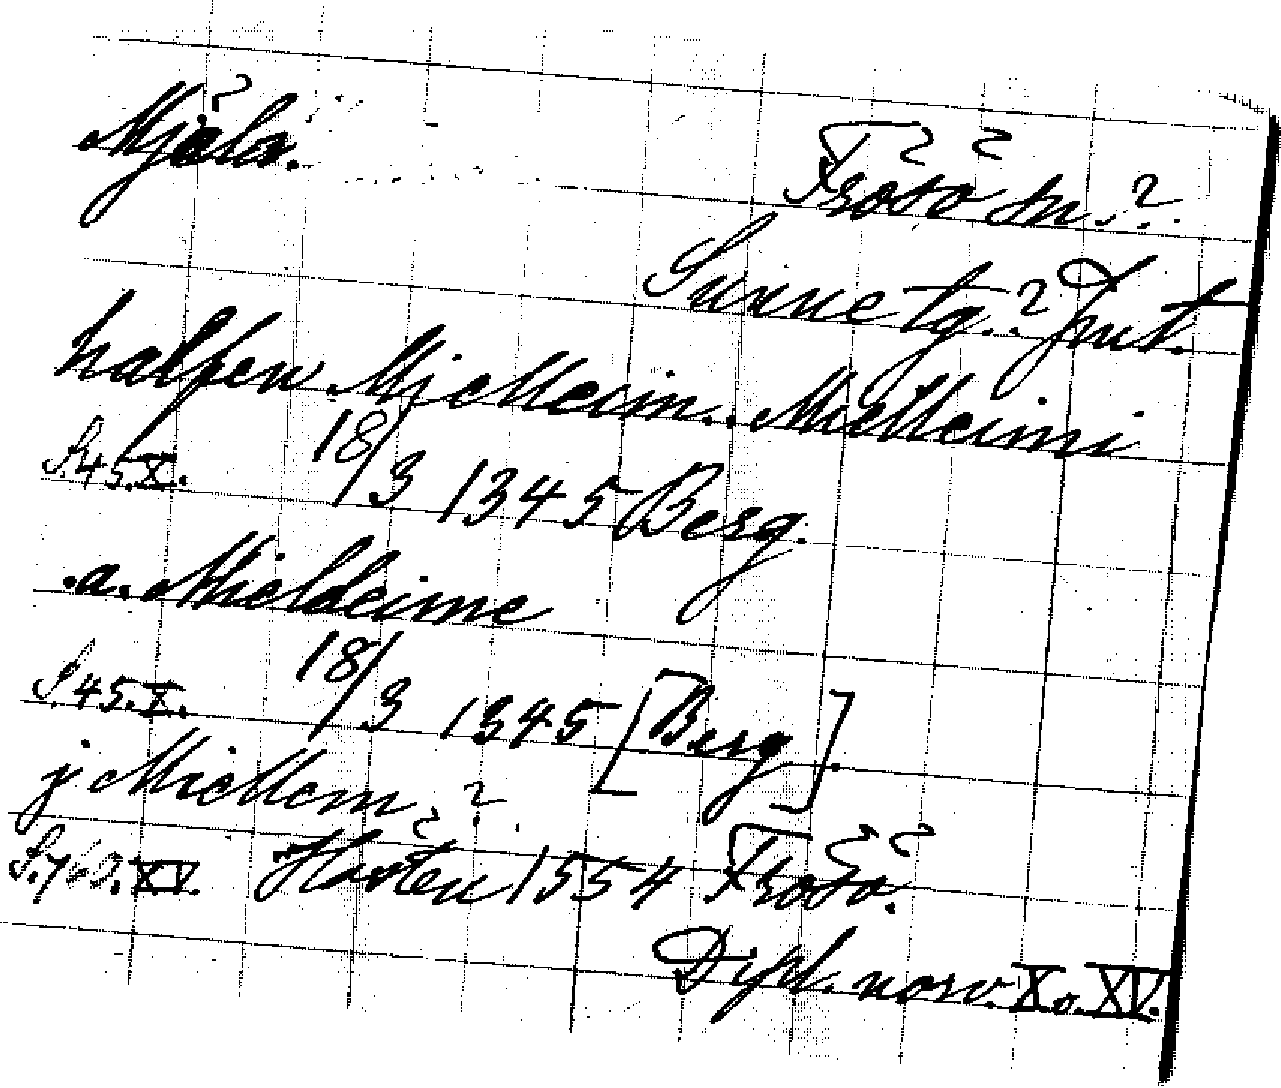 Mjäla.
Frösö sn.?
Sunne tg.? Jmt.
halfen Mjelleim.. Mielleimi
S.45.X. 18/3 1345 Berg.
.a. Mieldeime
S.45.X. 18/3 1345 [Berg].
j Miellem.?
XV. Hösten 1554 Frösö.
Dipl. norv. X. o. XV.